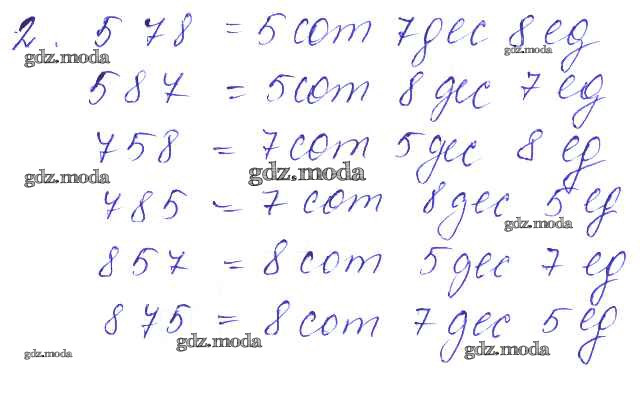 2. 578 = 5 сот 7 дес 8 ед
587 = 5 сот 8 дес 7 ед
758 = 7 сот 5 дес 8 ед
785 = 7 сот 8 дес 5 ед
857 = 8 сот 5 дес 7 ед
875 = 8 сот 7 дес 5 ед
gdz.moda
gdz.moda
gdz.moda
gdz.moda
gdz.moda
gdz.moda
gdz.moda
gdz.moda